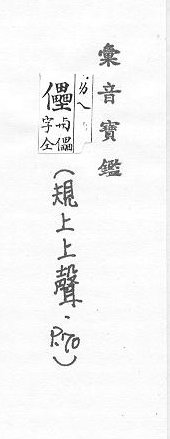 彙音寶鑑
ㄌㄟ
㒍与儡字仝
(規上上聲·P.70)